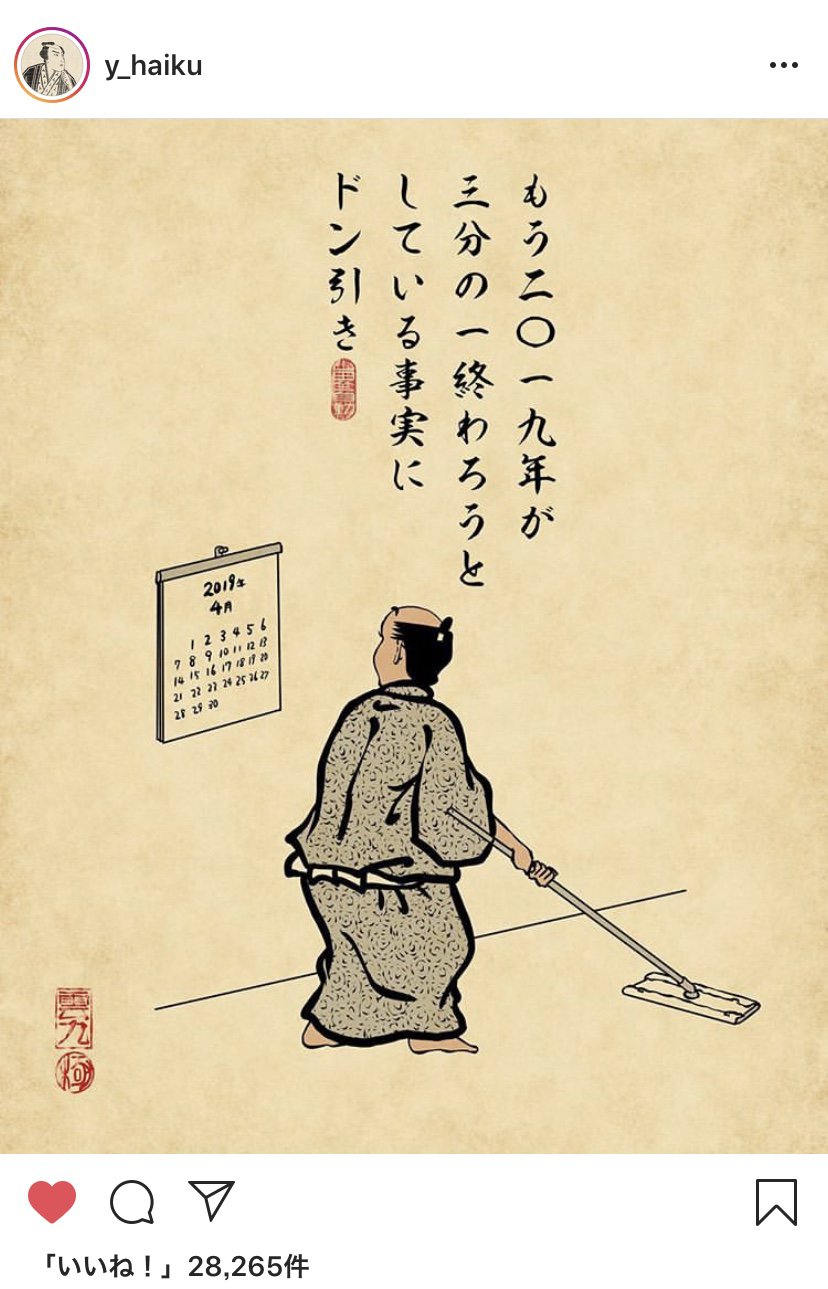 y_haiku
もう二〇一九年が
三分の一終わろうと
している事実に
ドン引き
2019年
4月
1 2 3 4 5 6
7 8 9 10 11 12 13
14 15 16 17 18 19 20
21 22 23 24 25 26 27
28 29 30
「いいね！」28,265件